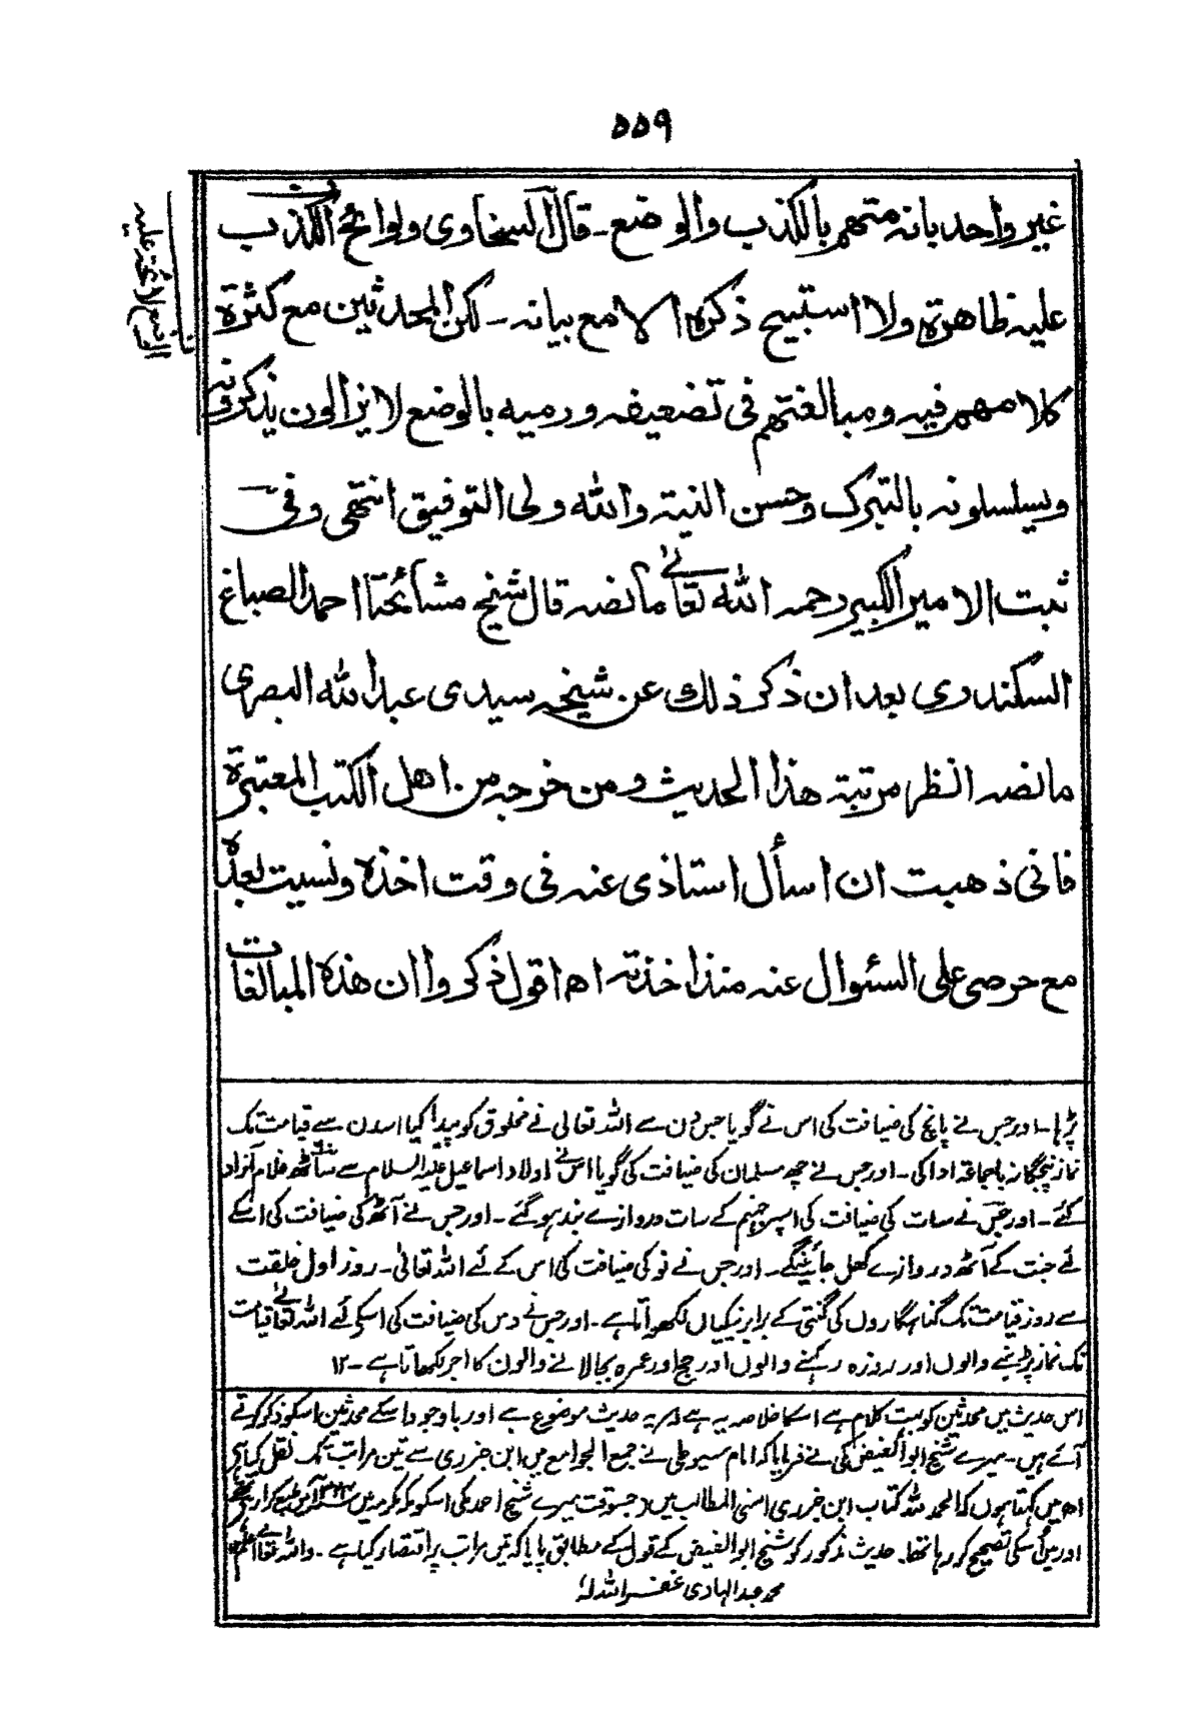 ۵۵۹
غير واحد بانه متهم بالكذب والوضع ـ قال السخاوى ولوائح الكذب
عليه ظاهرة ولا استبيح ذكره الا مع بيانه ـ لكن المحدثين مع كثرة
كلامهم فيه ومبالغتهم فى تضعيفه ورميه بالوضع لا يزالون يذكرونه
ويسلسلونه بالتبرك وحسن النية والله ولى التوفيق انتهى وفى
ثبت الامير الكبير رحمه الله تعالى ما نصه قال شيخ مشائخنا احمد الصباغ
السكندرى بعد ان ذكر ذلك عن شيخه سيدى عبدالله البصرى
ما نصه انظر مرتبة هذا الحديث ومن خرجه من اهل الكتب المعتبرة
فانى ذهبت ان اسأل استاذى عنه فى وقت اخذه ونسيت بعده
مع حرصى على السئوال عنه منذ اخذته اه اقول ذكروا ان هذه المبالغات
پڑہا ـ اور جس نے پانچ کی ضیافت کی اس نے گویا جس دن سے اللہ تعالی نے مخلوق کو پیدا کیا اسدن سے قیامت تک
نماز پنجگانہ باجماعة ادا کی ـ اور جس نے چھ مسلمان کی ضیافت کی گویا اس نے اولاد اسماعیل علیہ السلام سے ساٹھ غلام آزاد
کئے ـ اور جس نے سات کی ضیافت کی اسپر جہنم کے سات دروازے بند ہوگئے ـ اور جس نے آٹھ کی ضیافت کی اسکے
لئے جنت کے آٹھ دروازے کھل جائینگے ـ اور جس نے نو کی ضیافت کی اس کے لئے اللہ تعالیٰ ـ روز اول خلقت
سے روز قیامت تک گناہگاروں کی گنتی کے برابر نیکیاں لکھواتا ہے ـ اور جس نے دس کی ضیافت کی اسکے لئے اللہ تعالیٰ قیامت
تک نماز پڑہنے والوں اور روزہ رکہنے والوں اور حج اور عمرہ بجالانے والوں کا اجر لکھاتا ہے ـ ۱۲
اس حدیث میں محدثین کو بہت کلام ہے اسکا خلاصہ یہ ہے کہ یہ حدیث موضوع ہے اور باوجود اسکے محدثین اسکو ذکر کرتے
آئے ہیں ـ میرے شیخ ابو الفیض مکی نے فرمایا کہ امام سیوطی نے جمع الجوامع میں ابن جزری سے تین مراتب تک نقل کیا ہے
اھ میں کہتا ہوں کہ الحمد للہ کتاب ابن جزری اسنی المطالب میں جسوقت میرے شیخ احمد مکی اسکو مکہ مکرمہ میں طبع کرا رہے تھے
اور میں اسکی تصحیح کر رہا تھا ـ حدیث مذکور کو شیخ ابو الفیض کے قول کے مطابق پایا کہ تین مراتب پر اقتصار کیا ہے ـ واللہ تعالیٰ اعلم
محمد عبد الہادی غفر اللہ لہ